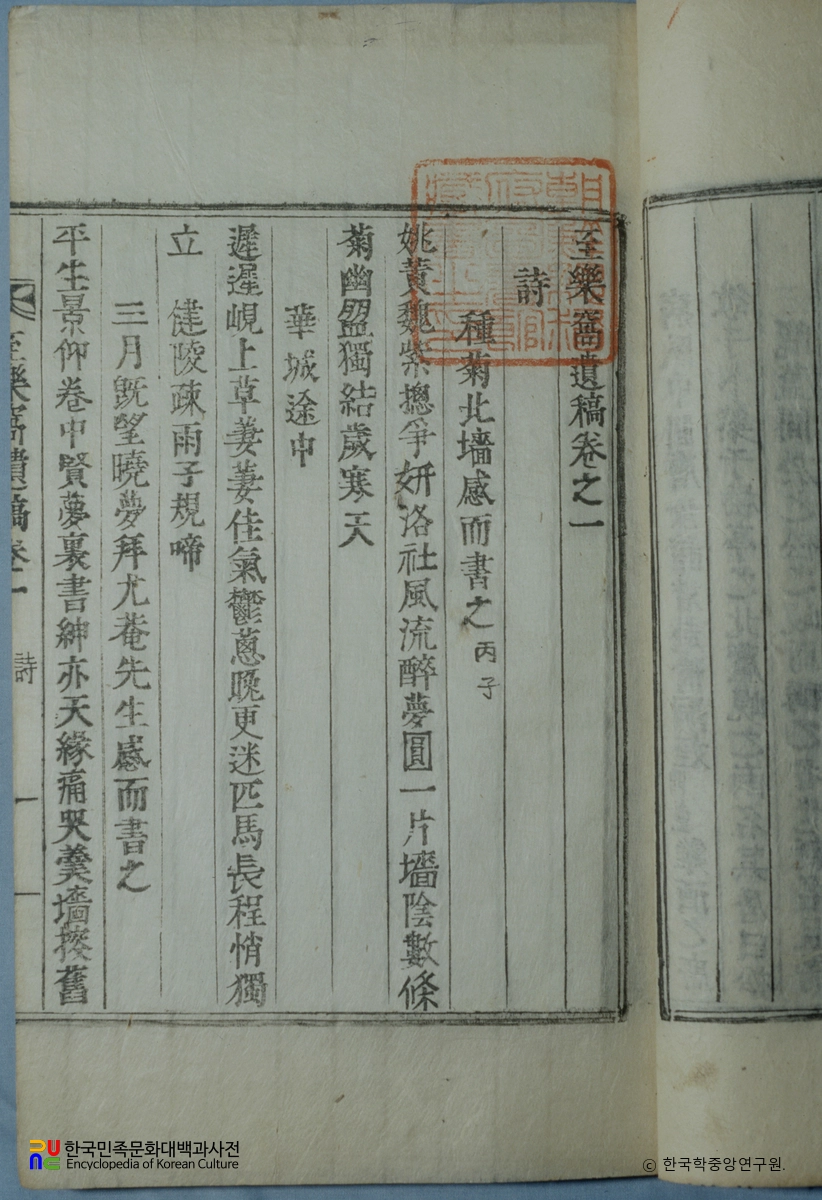 至樂窩遺稿卷之一
詩
種菊北墻感而書之 丙子
姚黃魏紫摠爭姸洛社風流醉夢圓一片墻陰數條
菊幽盟獨結歲寒天
華城途中
遲遲峴上草萋萋佳氣鬱蔥晩更迷匹馬長程悄獨
立 健陵疎雨子規啼
三月旣望曉夢拜尤菴先生感而書之
平生景仰卷中賢夢裏書紳亦天緣痛哭羹墻摧舊
至樂窩遺稿卷一 詩 一
한국민족문화대백과사전
Encyclopedia of Korean Culture
© 한국학중앙연구원.